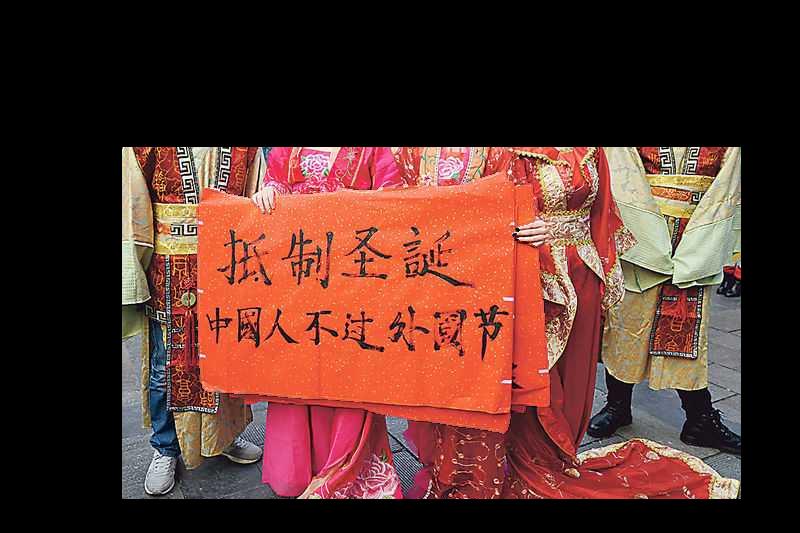 抵制圣誕
中國人不过外國节